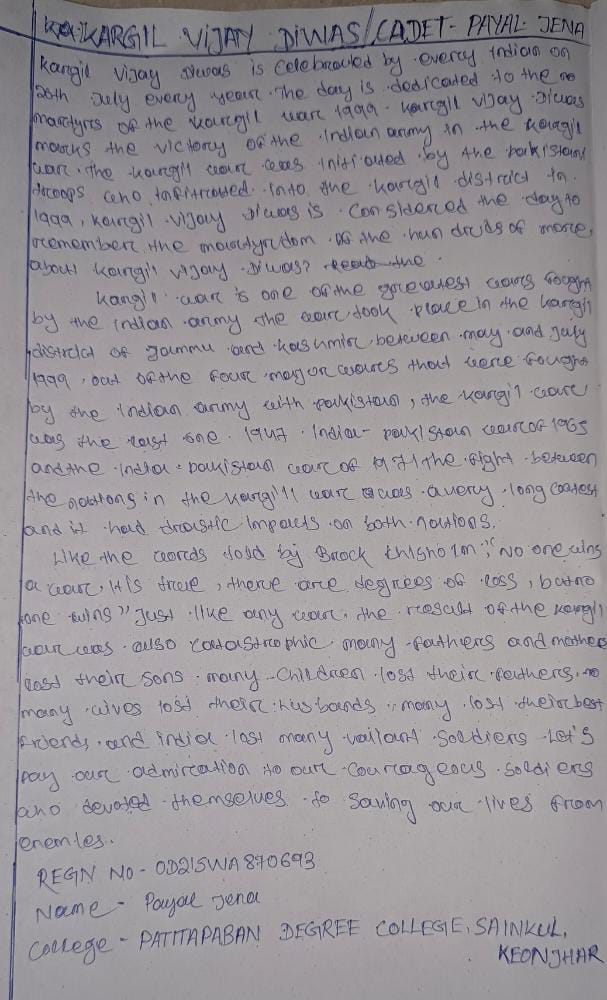 KARGIL VIJAY DIWAS/CADET- PAYAL JENA
Kargil Vijay Diwas is celebrated by every Indian on
26th July every year. The day is dedicated to the
martyrs of the kargil war 1999. kargil vijay Diwas
marks the victory of the Indian army in the kargil
war. The kargil war was initiated by the pakistani
troops who infiltrated into the kargil district in
1999, kargil vijay Diwas is considered the day to
remember the martyrdom of the hundreds of more,
about kargil vijay Diwas? Read the.
Kargil war is one of the greatest wars fought
by the indian army the war took place in the kargil
district of Jammu and kashmir between may and july
1999, out of the four major wars that were fought
by the indian army with pakistan, the kargil war
was the last one. 1947 India- pakistan war of 1965
and the india-pakistan war of 1971 the fight between
the nations in the kargill war was avery long contest
and it had drastic impacts on both nations.
Like the words told by Brock Chisholm, "No one wins
a war. It is true, there are degrees of loss, but no
one wins" Just like any war, the result of the kargil
war was also catastrophic many fathers and mother
lost their sons many children lost their fathers,
many wives lost their husbands, many lost their best
friends and india lost many valiant soldiers Let's
pay our admiration to our courageous soldiers
who devoted themselves to saving our lives from
enemies.
REGN NO- OD21SWA870693
Name- Payal Jena
College- PATITAPABAN DEGREE COLLEGE, SAINKUL,
KEONJHAR